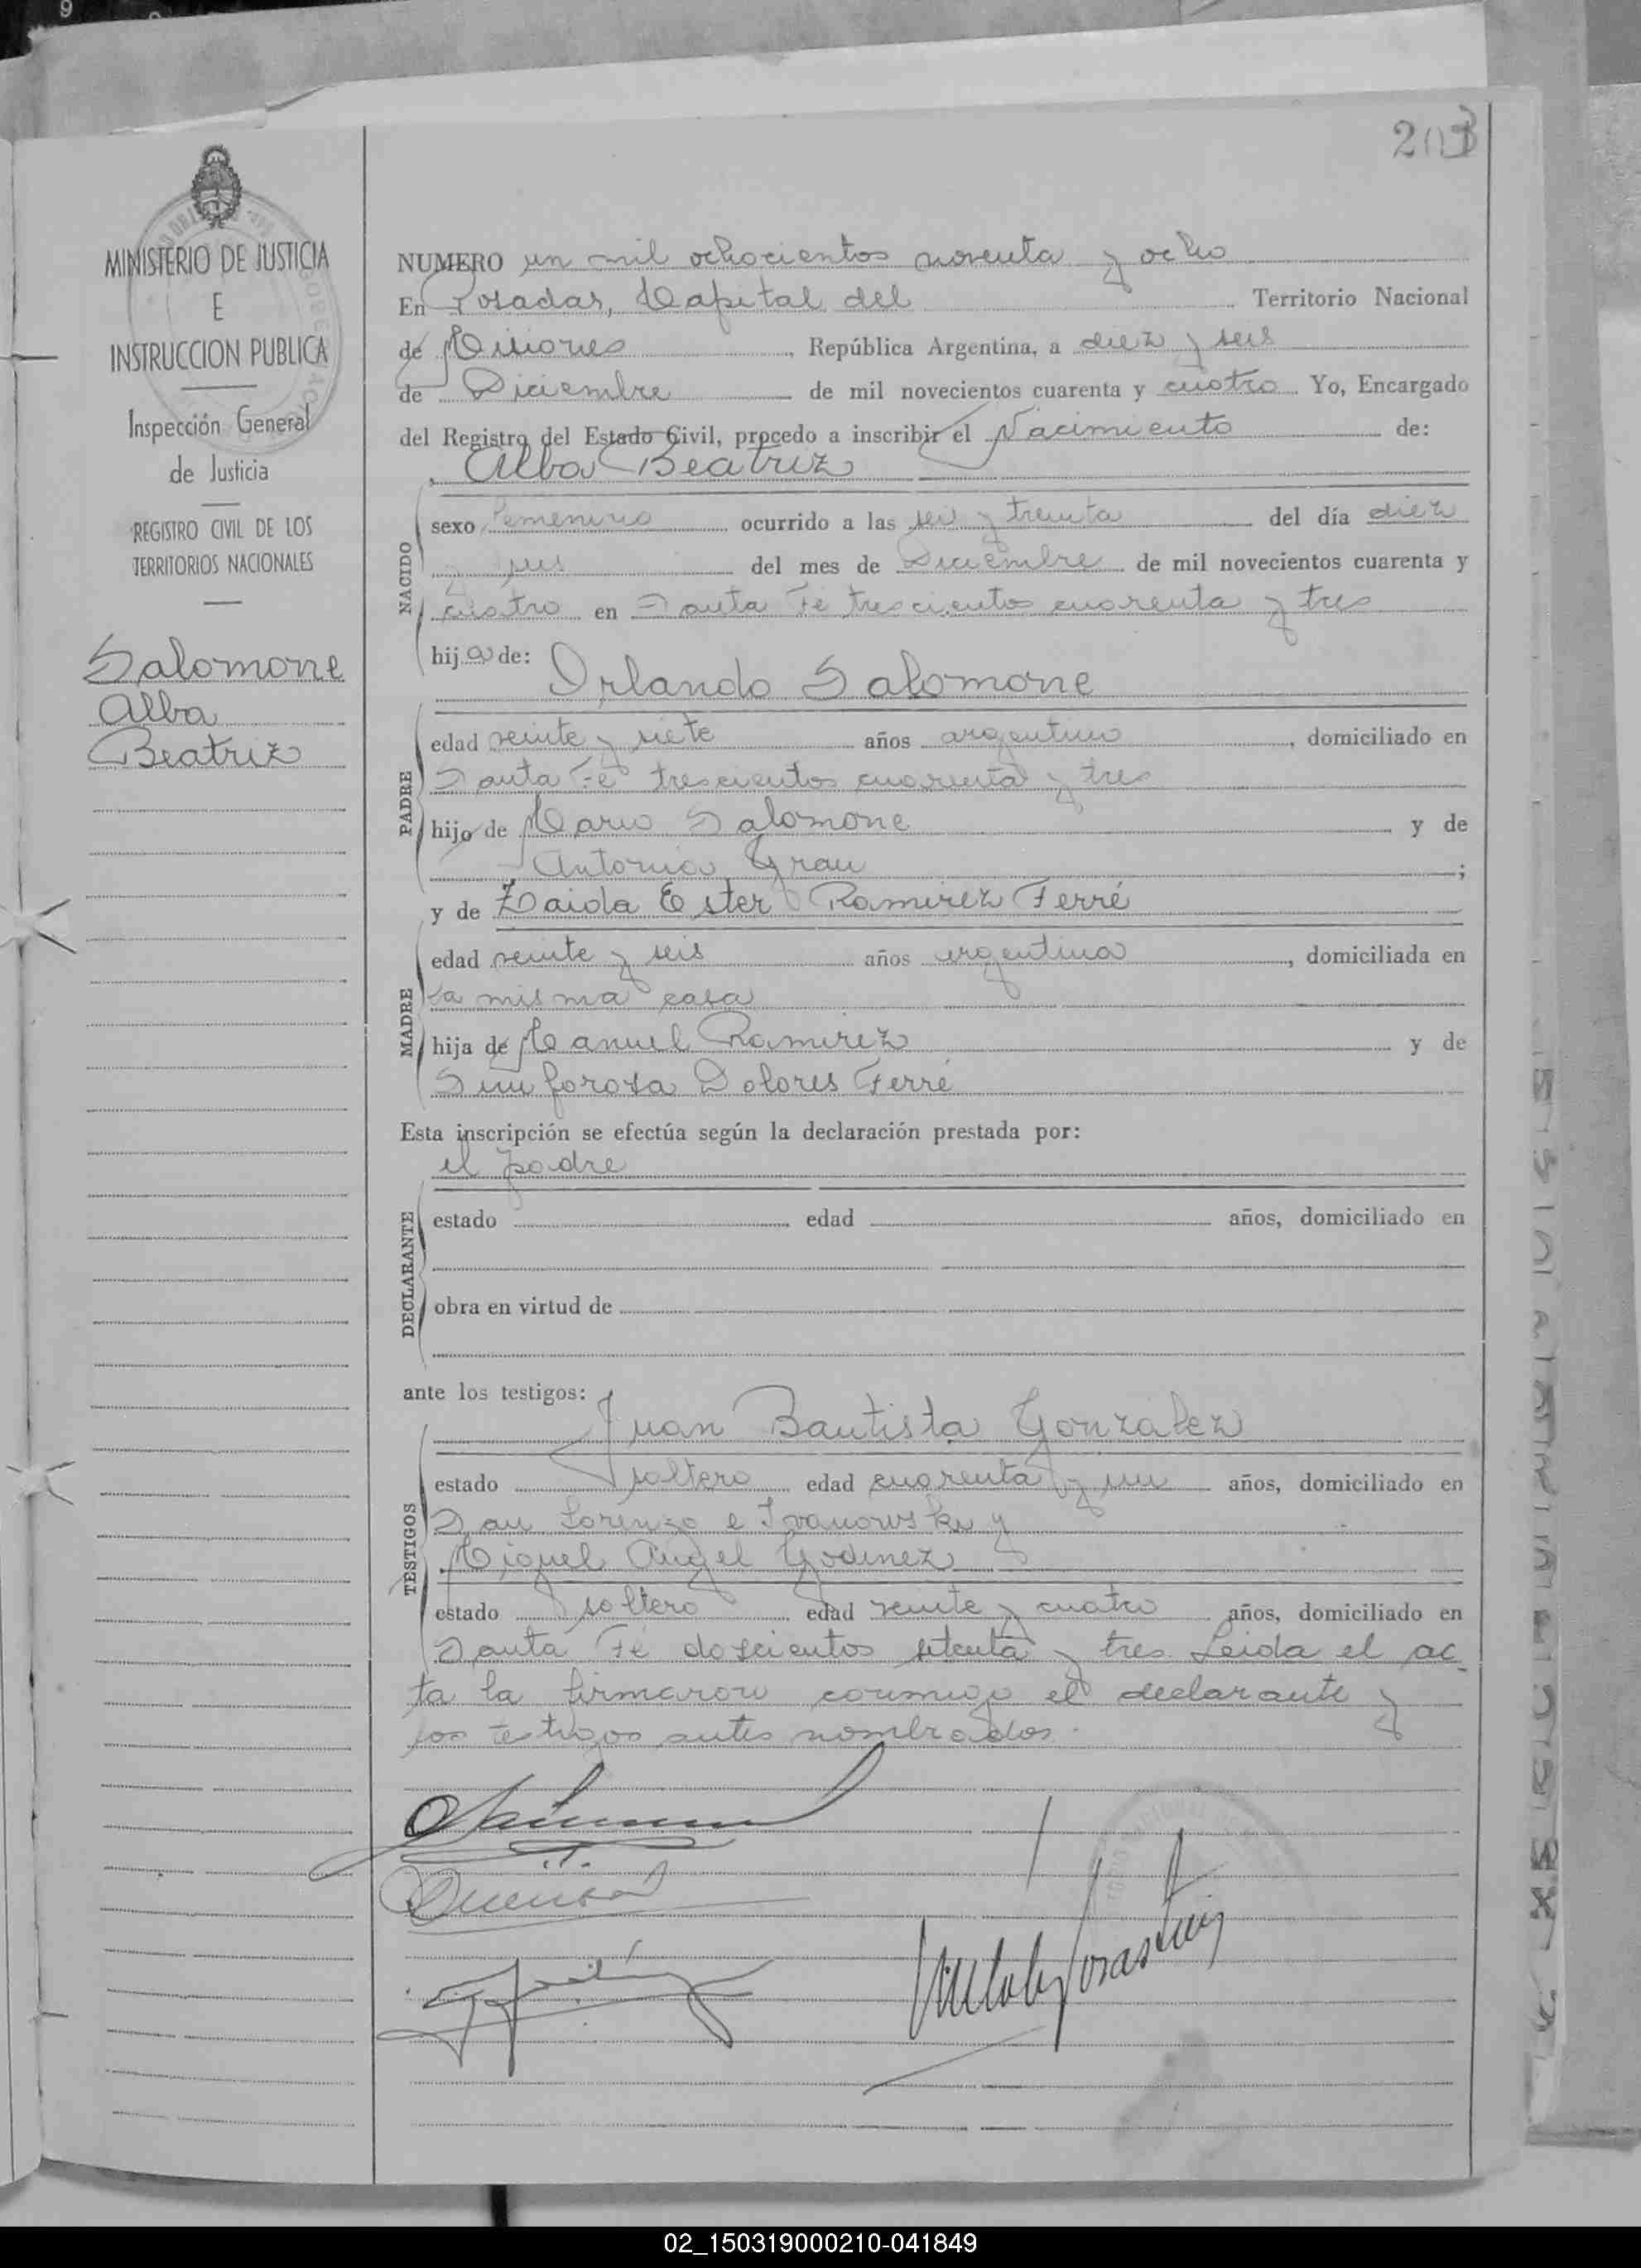 203
MINISTERIO DE JUSTICIA
E
INSTRUCCION PUBLICA
Inspección General
de Justicia
REGISTRO CIVIL DE LOS
TERRITORIOS NACIONALES
Salomone
Alba
Beatriz
NUMERO un mil ochocientos noventa y ocho
En Posadas, Capital del Territorio Nacional
de Misiones, República Argentina, a diez y seis
de Diciembre de mil novecientos cuarenta y cuatro Yo, Encargado
del Registro del Estado Civil, procedo a inscribir el Nacimiento de:
Alba Beatriz
NACIDO
sexo femenino ocurrido a las seis y treinta del día diez
y seis del mes de Diciembre de mil novecientos cuarenta y
cuatro en Santa Fé trescientos cuarenta y tres
hija de:
Orlando Salomone
PADRE
edad veinte y siete años argentino, domiciliado en
Santa Fé trescientos cuarenta y tres
hijo de Mario Salomone y de
Antonia Grau;
y de Zaida Ester Ramirez Ferré
MADRE
edad veinte y seis años argentina, domiciliada en
la misma casa
hija de Manuel Ramirez y de
Sinforosa Dolores Ferré
Esta inscripción se efectúa según la declaración prestada por:
el padre
DECLARANTE
estado edad años, domiciliado en
obra en virtud de
ante los testigos:
Juan Bautista Gonzalez
TESTIGOS
estado soltero edad cuarenta y un años, domiciliado en
San Lorenzo e Ivanowsky y
Miguel Angel Godinez
estado soltero edad veinte y cuatro años, domiciliado en
Santa Fé doscientos setenta y tres. Leida el ac
ta la firmaron conmigo el declarante y
los testigos antes nombrados.
02_150319000210-041849